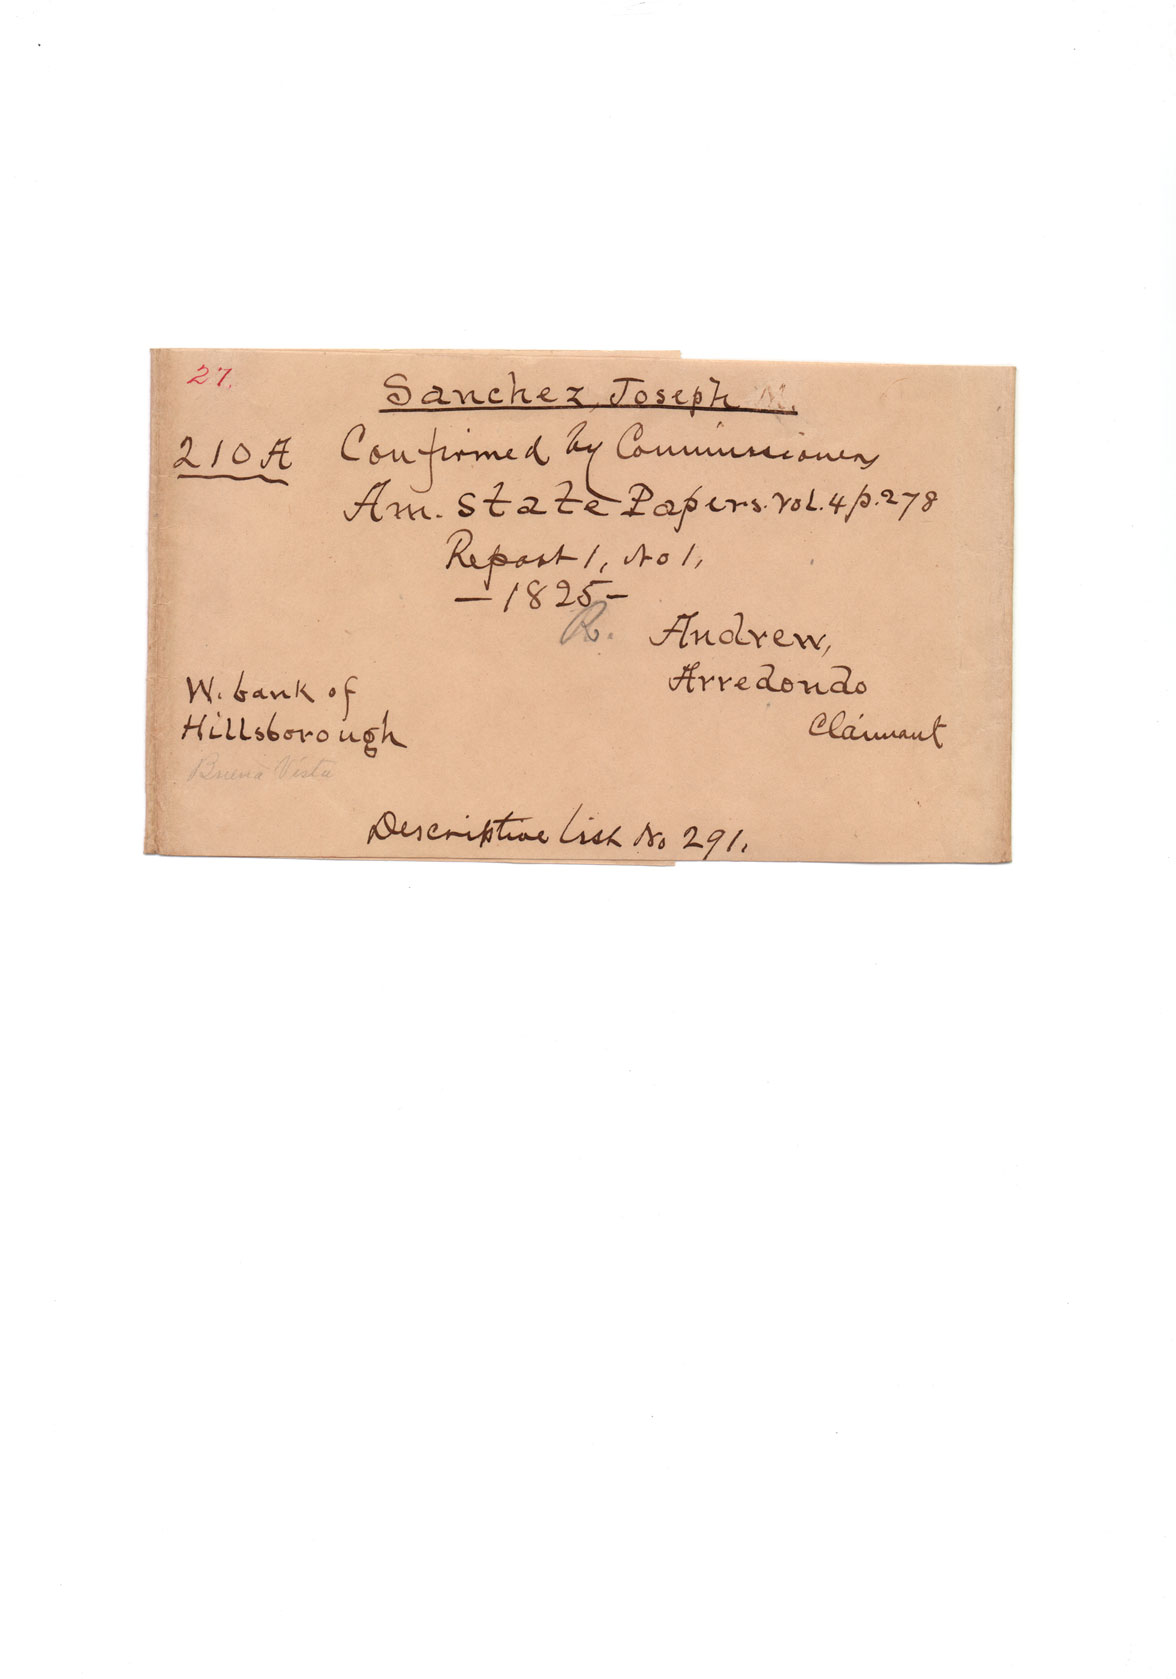 27.
Sanchez, Joseph M.
210 A Confirmed by Commissioners
Am. State Papers. Vol. 4 p. 278
Report 1, No 1,
— 1825 —
R.
Andrew,
Arredondo
Claimant
W. bank of
Hillsborough
Buena Vista
Descriptive list No 291.